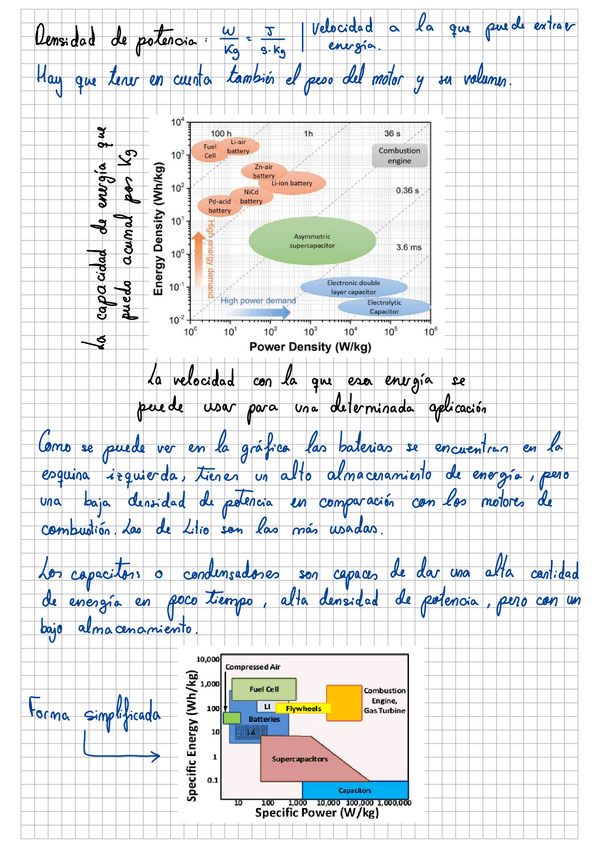 Densidad de potencia: W/Kg = J/s·kg | Velocidad a la que puede extraer
energía.
Hay que tener en cuenta también el peso del motor y su volumen.
La capacidad de energía que
puedo acumal por Kg
Energy Density (Wh/kg)
10⁴
10³
10²
10¹
10⁰
10⁻¹
10⁻²
100 h
1h
36 s
0.36 s
3.6 ms
Fuel
Cell
Li-air
battery
Combustion
engine
Zn-air
battery
Li-ion battery
NiCd
battery
Pd-acid
battery
Asymmetric
supercapacitor
High energy demand
Electronic double
layer capacitor
High power demand
Electrolytic
Capacitor
10⁰ 10¹ 10² 10³ 10⁴ 10⁵ 10⁶
Power Density (W/kg)
La velocidad con la que esa energía se
puede usar para una determinada aplicación
Como se puede ver en la gráfica las baterias se encuentran en la
esquina izquierda, tienen un alto almacenamiento de energía, pero
una baja densidad de potencia en comparación con los motores de
combustión. Las de Litio son las más usadas.
Los capacitors o condensadores son capaces de dar una alta cantidad
de energía en poco tiempo, alta densidad de potencia, pero con un
bajo almacenamiento.
Forma simplificada
Specific Energy (Wh/kg)
10,000
1,000
100
10
1
0.1
Compressed Air
Fuel Cell
LI
Flywheels
Batteries
LA
Combustion
Engine,
Gas Turbine
Supercapacitors
Capacitors
10 100 1,000 10,000 100,000 1,000,000
Specific Power (W/kg)